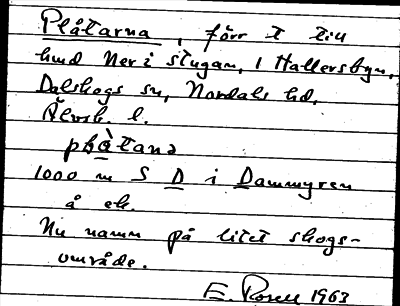 Plåtarna, förr t till
hmd Ner i stugan, 1 Hallersbyn,
Dalskogs sn, Nordals hd,
Älvsb. l.
plåtana
1000 m S D i Dammyren
å ek.
Nu namn på litet skogs-
område.
E. Rosell 1963